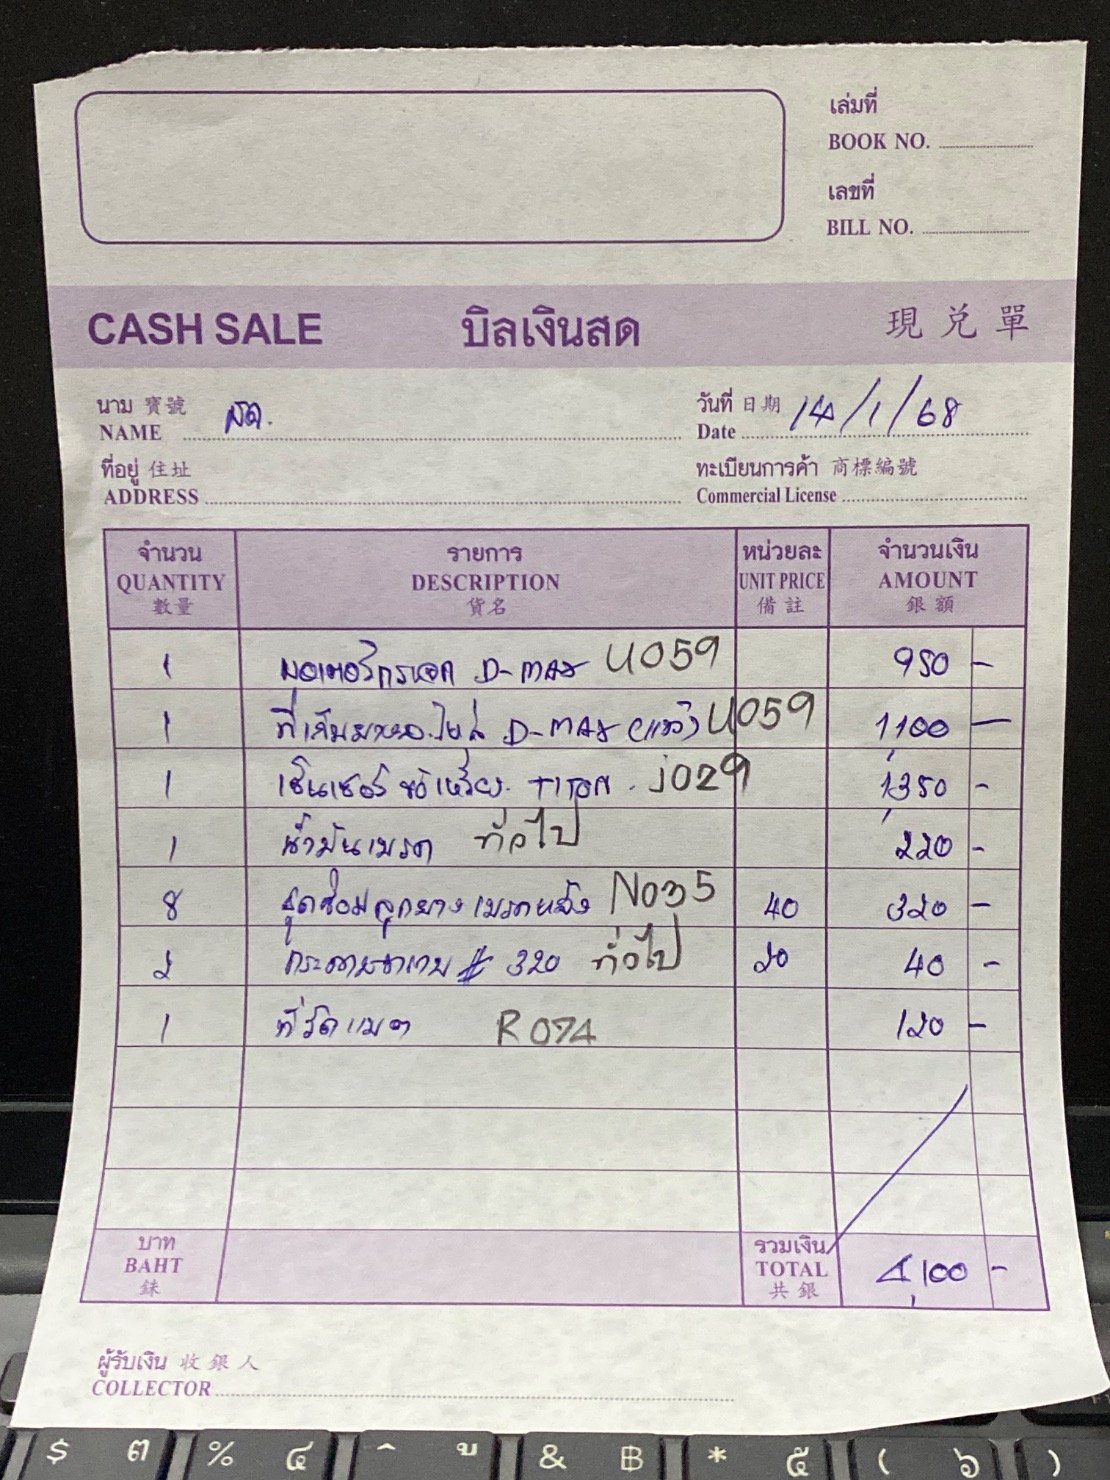 เล่มที่
BOOK NO.
เลขที่
BILL NO.
CASH SALE บิลเงินสด 現兌單
นาม 寶號
NAME สด.
วันที่ 日期
Date 14/1/68
ที่อยู่ 住址
ADDRESS
ทะเบียนการค้า 商標編號
Commercial License
จำนวน รายการ หน่วยละ จำนวนเงิน
QUANTITY DESCRIPTION UNIT PRICE AMOUNT
數量 貨名 備註 銀額
1 มอเตอร์กระจก D-MAX U059 950 -
1 D-MAX (แก้ว) U059 1,100 -
1 เซ็นเซอร์ข้อเหวี่ยง. TITAN. J029 1,350 -
1 น้ำมันเบรก ทั่วไป 220 -
8 ชุดซ่อมลูกยางเบรกหลัง N035 40 320 -
2 กระดาษทราย # 320 ทั่วไป 20 40 -
1 ที่รัดแบต R074 120 -
บาท รวมเงิน
BAHT TOTAL 4,100 -
銖 共銀
ผู้รับเงิน 收銀人
COLLECTOR
$ ๓ % ๔ ู & ฿ * ๕ ( ๖ )